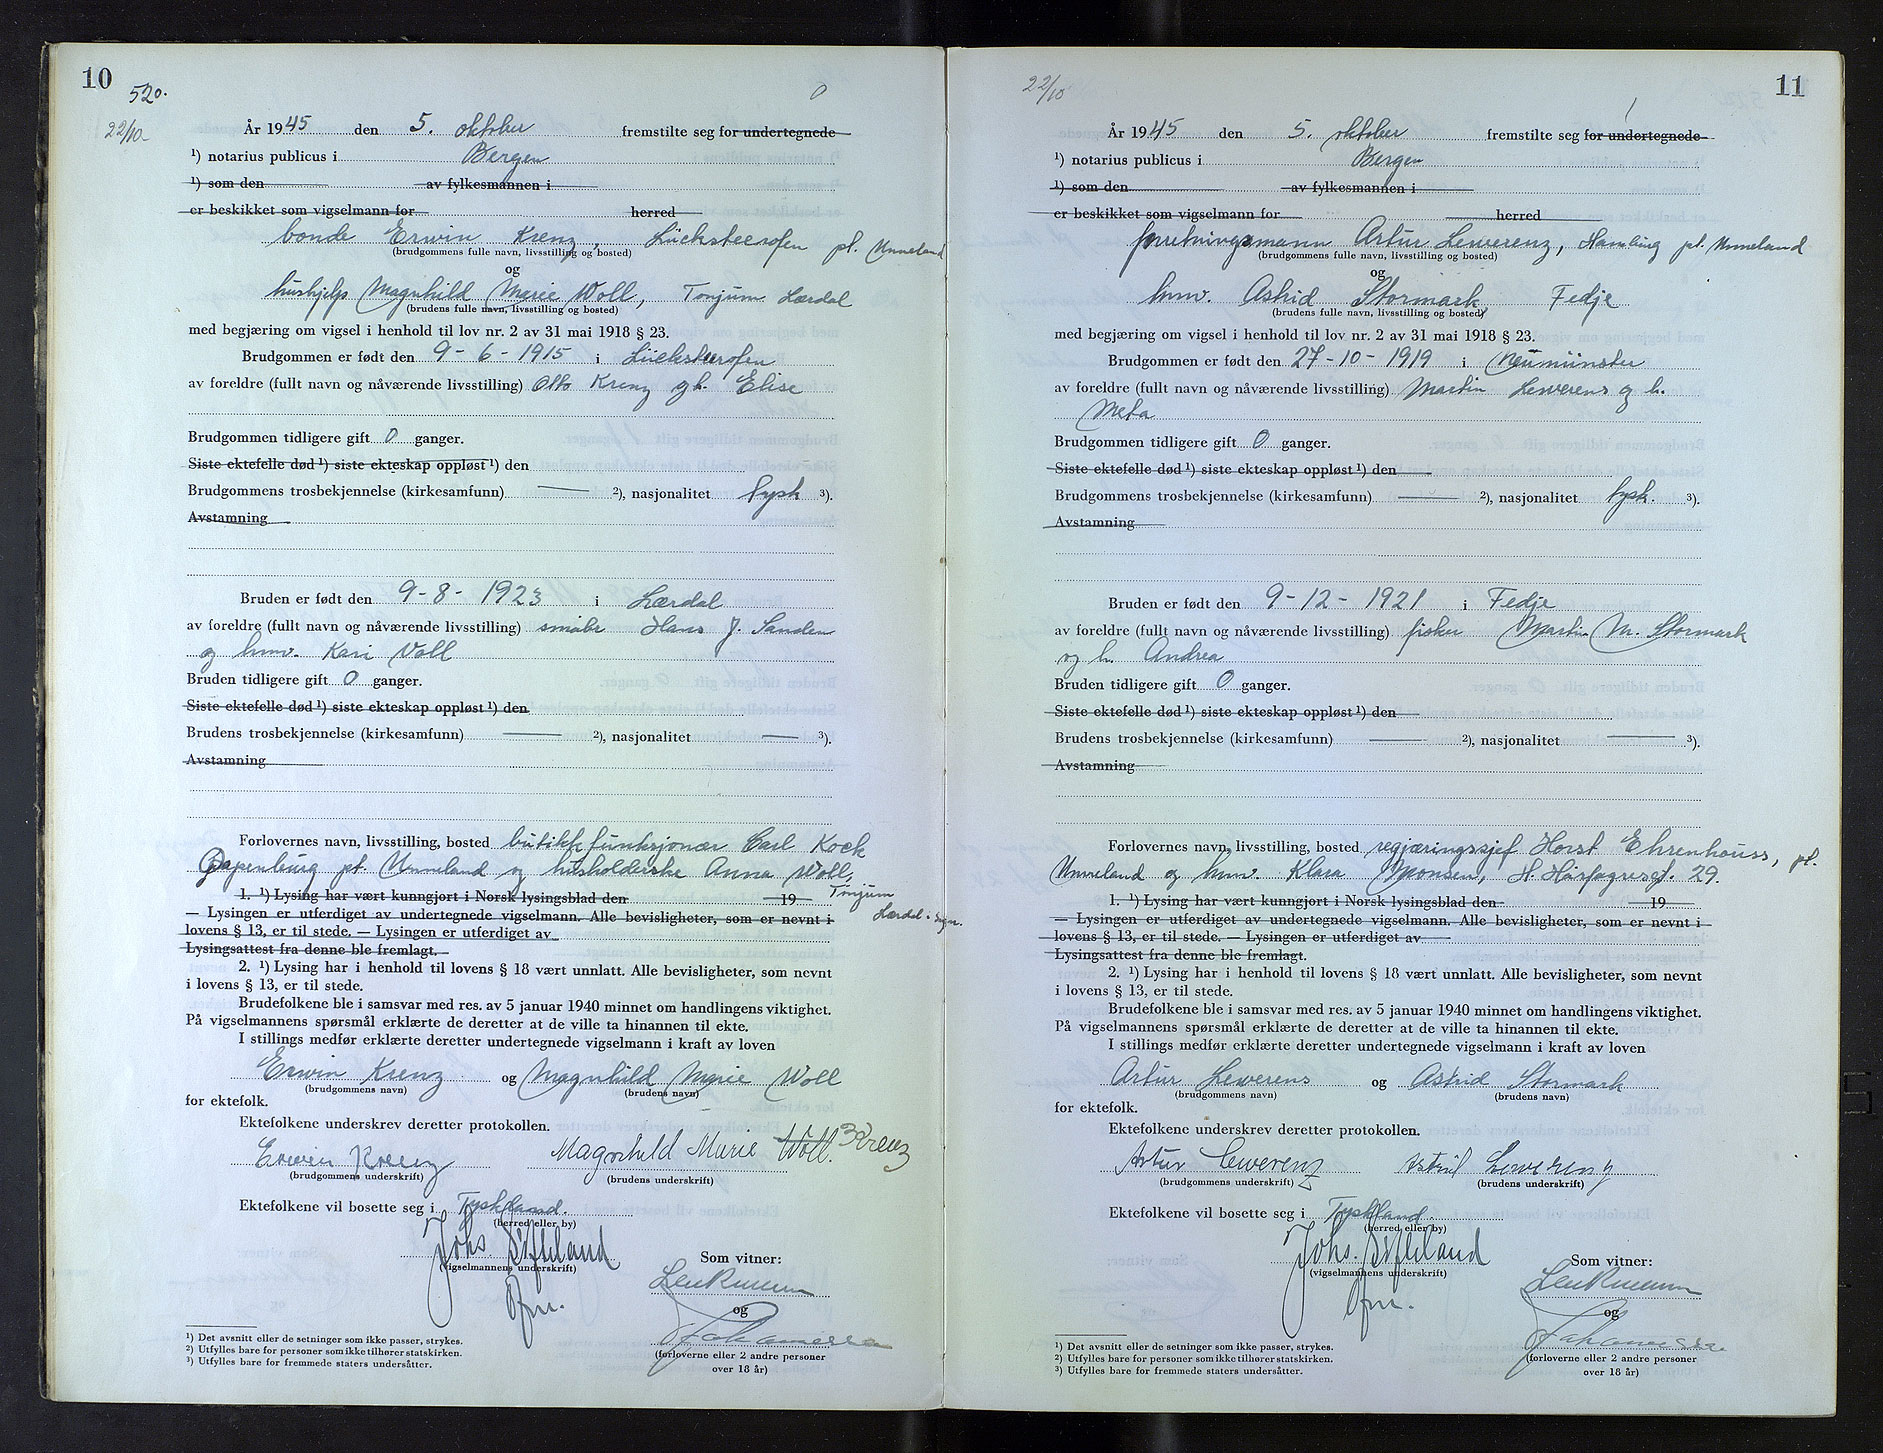 10
520.
22/10
0
År 1945 den 5. oktober fremstilte seg for undertegnede
¹) notarius publicus i Bergen
¹) som den av fylkesmannen i
er beskikket som vigselmann for herred
bonde Erwin Krenz, pt. Unneland
(brudgommens fulle navn, livsstilling og bosted)
og
hushjelp Magnhild Marie Woll, Tonjum Lærdal
(brudens fulle navn, livsstilling og bosted)
med begjæring om vigsel i henhold til lov nr. 2 av 31 mai 1918 § 23.
Brudgommen er født den 9-6-1915 i
av foreldre (fullt navn og nåværende livsstilling) Otto Krenz gh. Elise
Brudgommen tidligere gift 0 ganger.
Siste ektefelle død ¹) siste ekteskap oppløst ¹) den
Brudgommens trosbekjennelse (kirkesamfunn) — ²), nasjonalitet tysk ³).
Avstamning
Bruden er født den 9-8-1923 i Lærdal
av foreldre (fullt navn og nåværende livsstilling) småbr Hans J. Sanden
og hmv. Kari Voll
Bruden tidligere gift 0 ganger.
Siste ektefelle død ¹) siste ekteskap oppløst ¹) den
Brudens trosbekjennelse (kirkesamfunn) — ²), nasjonalitet — ³).
Avstamning
Forlovernes navn, livsstilling, bosted butikkfunksjonær Carl Kock
Papenburg pt. Unneland og husholderske Anna Woll,
Tonjum
Lærdal i Sogn.
1. ¹) Lysing har vært kunngjort i Norsk lysingsblad den 19
— Lysingen er utferdiget av undertegnede vigselmann. Alle bevisligheter, som er nevnt i
lovens § 13, er til stede. — Lysingen er utferdiget av
Lysingsattest fra denne ble fremlagt.
2. ¹) Lysing har i henhold til lovens § 18 vært unnlatt. Alle bevisligheter, som nevnt
i lovens § 13, er til stede.
Brudefolkene ble i samsvar med res. av 5 januar 1940 minnet om handlingens viktighet.
På vigselmannens spørsmål erklærte de deretter at de ville ta hinannen til ekte.
I stillings medfør erklærte deretter undertegnede vigselmann i kraft av loven
Erwin Krenz og Magnhild Marie Woll
(brudgommens navn) (brudens navn)
for ektefolk.
Ektefolkene underskrev deretter protokollen.
Erwin Krenz Magnhild Marie Woll. Krenz
(brudgommens underskrift) (brudens underskrift)
Ektefolkene vil bosette seg i Tyskland.
(herred eller by)
Johs.
(vigselmannens underskrift)
Som vitner:
og
Johannessen
(forloverne eller 2 andre personer
over 18 år)
¹) Det avsnitt eller de setninger som ikke passer, strykes.
²) Utfylles bare for personer som ikke tilhører statskirken.
³) Utfylles bare for fremmede staters undersåtter.
22/10
11
1
År 1945 den 5. oktober fremstilte seg for undertegnede
¹) notarius publicus i Bergen
¹) som den av fylkesmannen i
er beskikket som vigselmann for herred
forretningsmann Artur Lewerenz, Hamburg pt. Unneland
(brudgommens fulle navn, livsstilling og bosted)
og
hmv. Astrid Stormark, Fedje
(brudens fulle navn, livsstilling og bosted)
med begjæring om vigsel i henhold til lov nr. 2 av 31 mai 1918 § 23.
Brudgommen er født den 27-10-1919 i Neumünster
av foreldre (fullt navn og nåværende livsstilling) Martin Lewerens og h.
Meta
Brudgommen tidligere gift 0 ganger.
Siste ektefelle død ¹) siste ekteskap oppløst ¹) den
Brudgommens trosbekjennelse (kirkesamfunn) — ²), nasjonalitet tysk. ³).
Avstamning
Bruden er født den 9-12-1921 i Fedje
av foreldre (fullt navn og nåværende livsstilling) fisker Martin M. Stormark
og h. Andrea
Bruden tidligere gift 0 ganger.
Siste ektefelle død ¹) siste ekteskap oppløst ¹) den
Brudens trosbekjennelse (kirkesamfunn) — ²), nasjonalitet — ³).
Avstamning
Forlovernes navn, livsstilling, bosted regjæringssjef Horst Ehrenhouss, pt.
Unneland og hmv. Klara Monsen, H. Hårfagresgt. 29.
1. ¹) Lysing har vært kunngjort i Norsk lysingsblad den 19
— Lysingen er utferdiget av undertegnede vigselmann. Alle bevisligheter, som er nevnt i
lovens § 13, er til stede. — Lysingen er utferdiget av
Lysingsattest fra denne ble fremlagt.
2. ¹) Lysing har i henhold til lovens § 18 vært unnlatt. Alle bevisligheter, som nevnt
i lovens § 13, er til stede.
Brudefolkene ble i samsvar med res. av 5 januar 1940 minnet om handlingens viktighet.
På vigselmannens spørsmål erklærte de deretter at de ville ta hinannen til ekte.
I stillings medfør erklærte deretter undertegnede vigselmann i kraft av loven
Artur Lewerens og Astrid Stormark
(brudgommens navn) (brudens navn)
for ektefolk.
Ektefolkene underskrev deretter protokollen.
Artur Lewerenz Astrid Lewerenz
(brudgommens underskrift) (brudens underskrift)
Ektefolkene vil bosette seg i Tyskland.
(herred eller by)
Johs.
(vigselmannens underskrift)
Som vitner:
og
(forloverne eller 2 andre personer
over 18 år)
¹) Det avsnitt eller de setninger som ikke passer, strykes.
²) Utfylles bare for personer som ikke tilhører statskirken.
³) Utfylles bare for fremmede staters undersåtter.